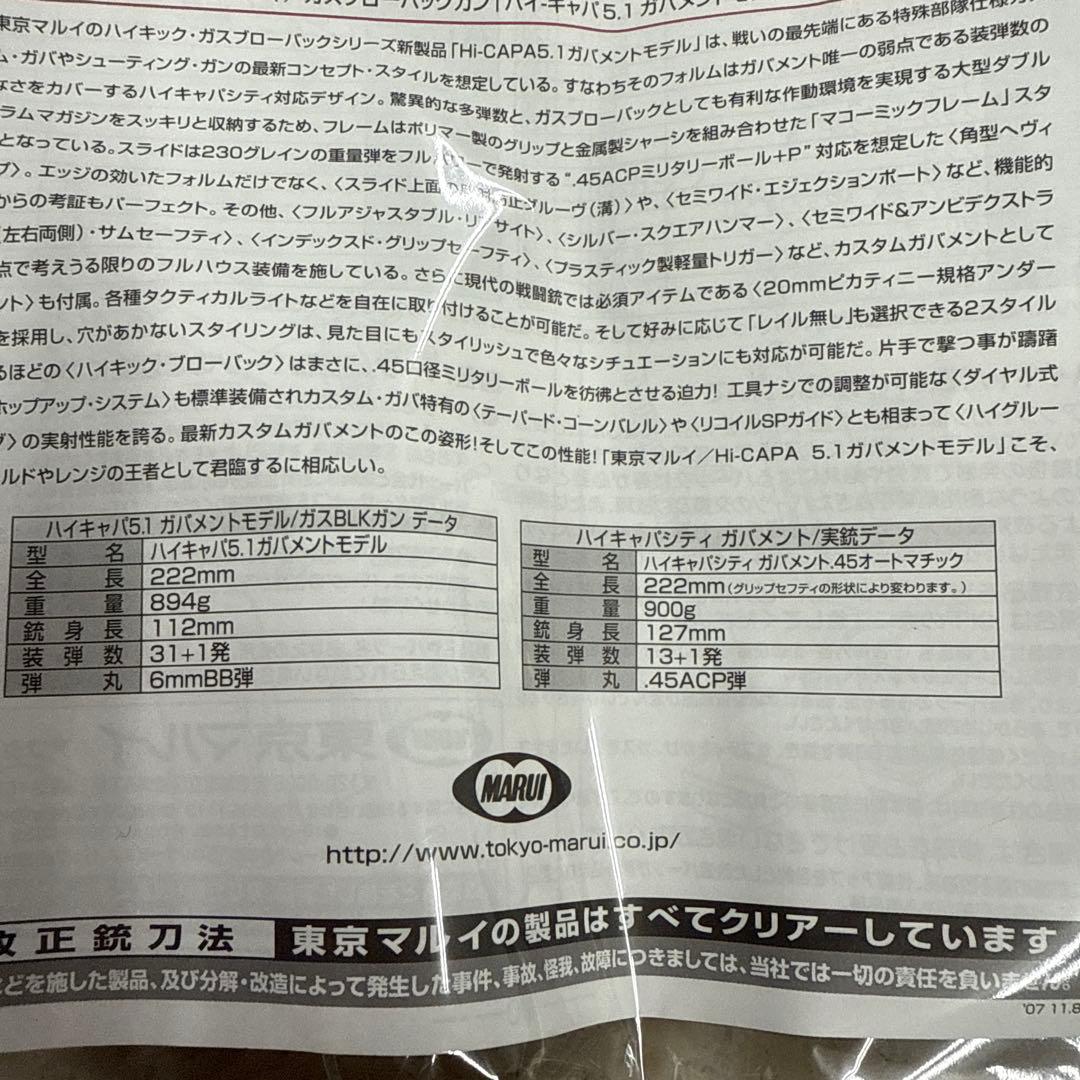 ガスブローバックガン「ハイ-キャパ5.1 ガバメント
東京マルイのハイキック・ガスブローバックシリーズ新製品「Hi-CAPA5.1ガバメントモデル」は、戦いの最先端にある特殊部隊仕様
ム・ガバやシューティング・ガンの最新コンセプト・スタイルを想定している。すなわちそのフォルムはガバメント唯一の弱点である装弾数の
なさをカバーするハイキャパシティ対応デザイン。驚異的な多弾数と、ガスブローバックとしても有利な作動環境を実現する大型ダブル
ラムマガジンをスッキリと収納するため、フレームはポリマー製のグリップと金属製シャーシを組み合わせた「マコーミックフレーム」スタ
となっている。スライドは230グレインの重量弾をフルで発射する“.45ACPミリタリーボール+P”対応を想定した〈角型ヘヴィ
ブ〉。エッジの効いたフォルムだけでなく、〈スライド上面の防止グルーヴ(溝)〉や、〈セミワイド・エジェクションポート〉など、機能的
からの考証もパーフェクト。その他、〈フルアジャスタブル・リアサイト〉、〈シルバー・スクエアハンマー〉、〈セミワイド&アンビデクストラ
(左右両側)・サムセーフティ〉、〈インデックスド・グリップセーフティ〉、〈プラスティック製軽量トリガー〉など、カスタムガバメントとして
点で考えうる限りのフルハウス装備を施している。さらに現代の戦闘銃では必須アイテムである〈20mmピカティニー規格アンダー
ント〉も付属。各種タクティカルライトなどを自在に取り付けることが可能だ。そして好みに応じて「レイル無し」も選択できる2スタイル
を採用し、穴があかないスタイリングは、見た目にもスタイリッシュで色々なシチュエーションにも対応が可能だ。片手で撃つ事が躊躇
るほどの〈ハイキック・ブローバック〉はまさに、.45口径ミリタリーボールを彷彿とさせる迫力!工具ナシでの調整が可能な〈ダイヤル式
ホップアップ・システム〉も標準装備されカスタム・ガバ特有の〈テーパード・コーンバレル〉や〈リコイルSPガイド〉とも相まって〈ハイグルー
グ〉の実射性能を誇る。最新カスタムガバメントのこの姿形!そしてこの性能!「東京マルイ/Hi-CAPA 5.1ガバメントモデル」こそ、
ルドやレンジの王者として君臨するに相応しい。
ハイキャパ5.1 ガバメントモデル/ガスBLKガン データ
型名 ハイキャパ5.1ガバメントモデル
全長 222mm
重量 894g
銃身長 112mm
装弾数 31+1発
弾丸 6mmBB弾
ハイキャパシティ ガバメント/実銃データ
型名 ハイキャパシティ ガバメント.45オートマチック
全長 222mm(グリップセフティの形状により変わります。)
重量 900g
銃身長 127mm
装弾数 13+1発
弾丸 .45ACP弾
MARUI
http://www.tokyo-marui.co.jp/
改正銃刀法 東京マルイの製品はすべてクリアーしています
などを施した製品、及び分解・改造によって発生した事件、事故、怪我、故障につきましては、当社では一切の責任を負いません。
'07 11.8